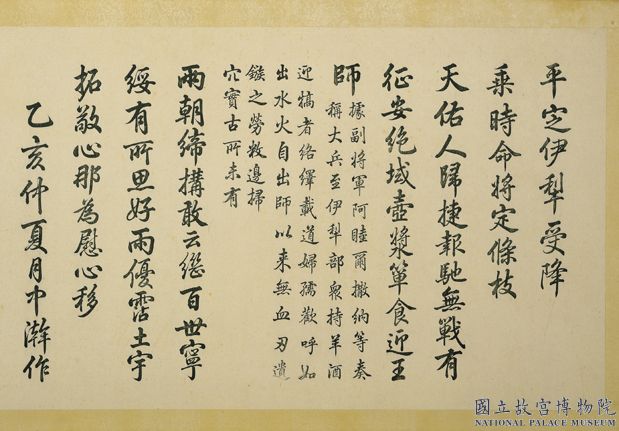 平定伊犂受降
乘時命將定條枝
天佑人歸捷報馳無戰有
征安絶域壺漿簞食迎王
師據副將軍阿睦爾撒納等奏
稱大兵至伊犂部衆持羊酒
迎犒者絡繹載道婦孺歡呼如
出水火自出師以来無血刃遺
鏃之勞敉邊掃
穴實古所未有
兩朝締搆敢云繼百世寧
綏有所思好雨優霑土宇
拓敬心那為慰心移
乙亥仲夏月中澣作
國立故宮博物院
NATIONAL PALACE MUSEUM